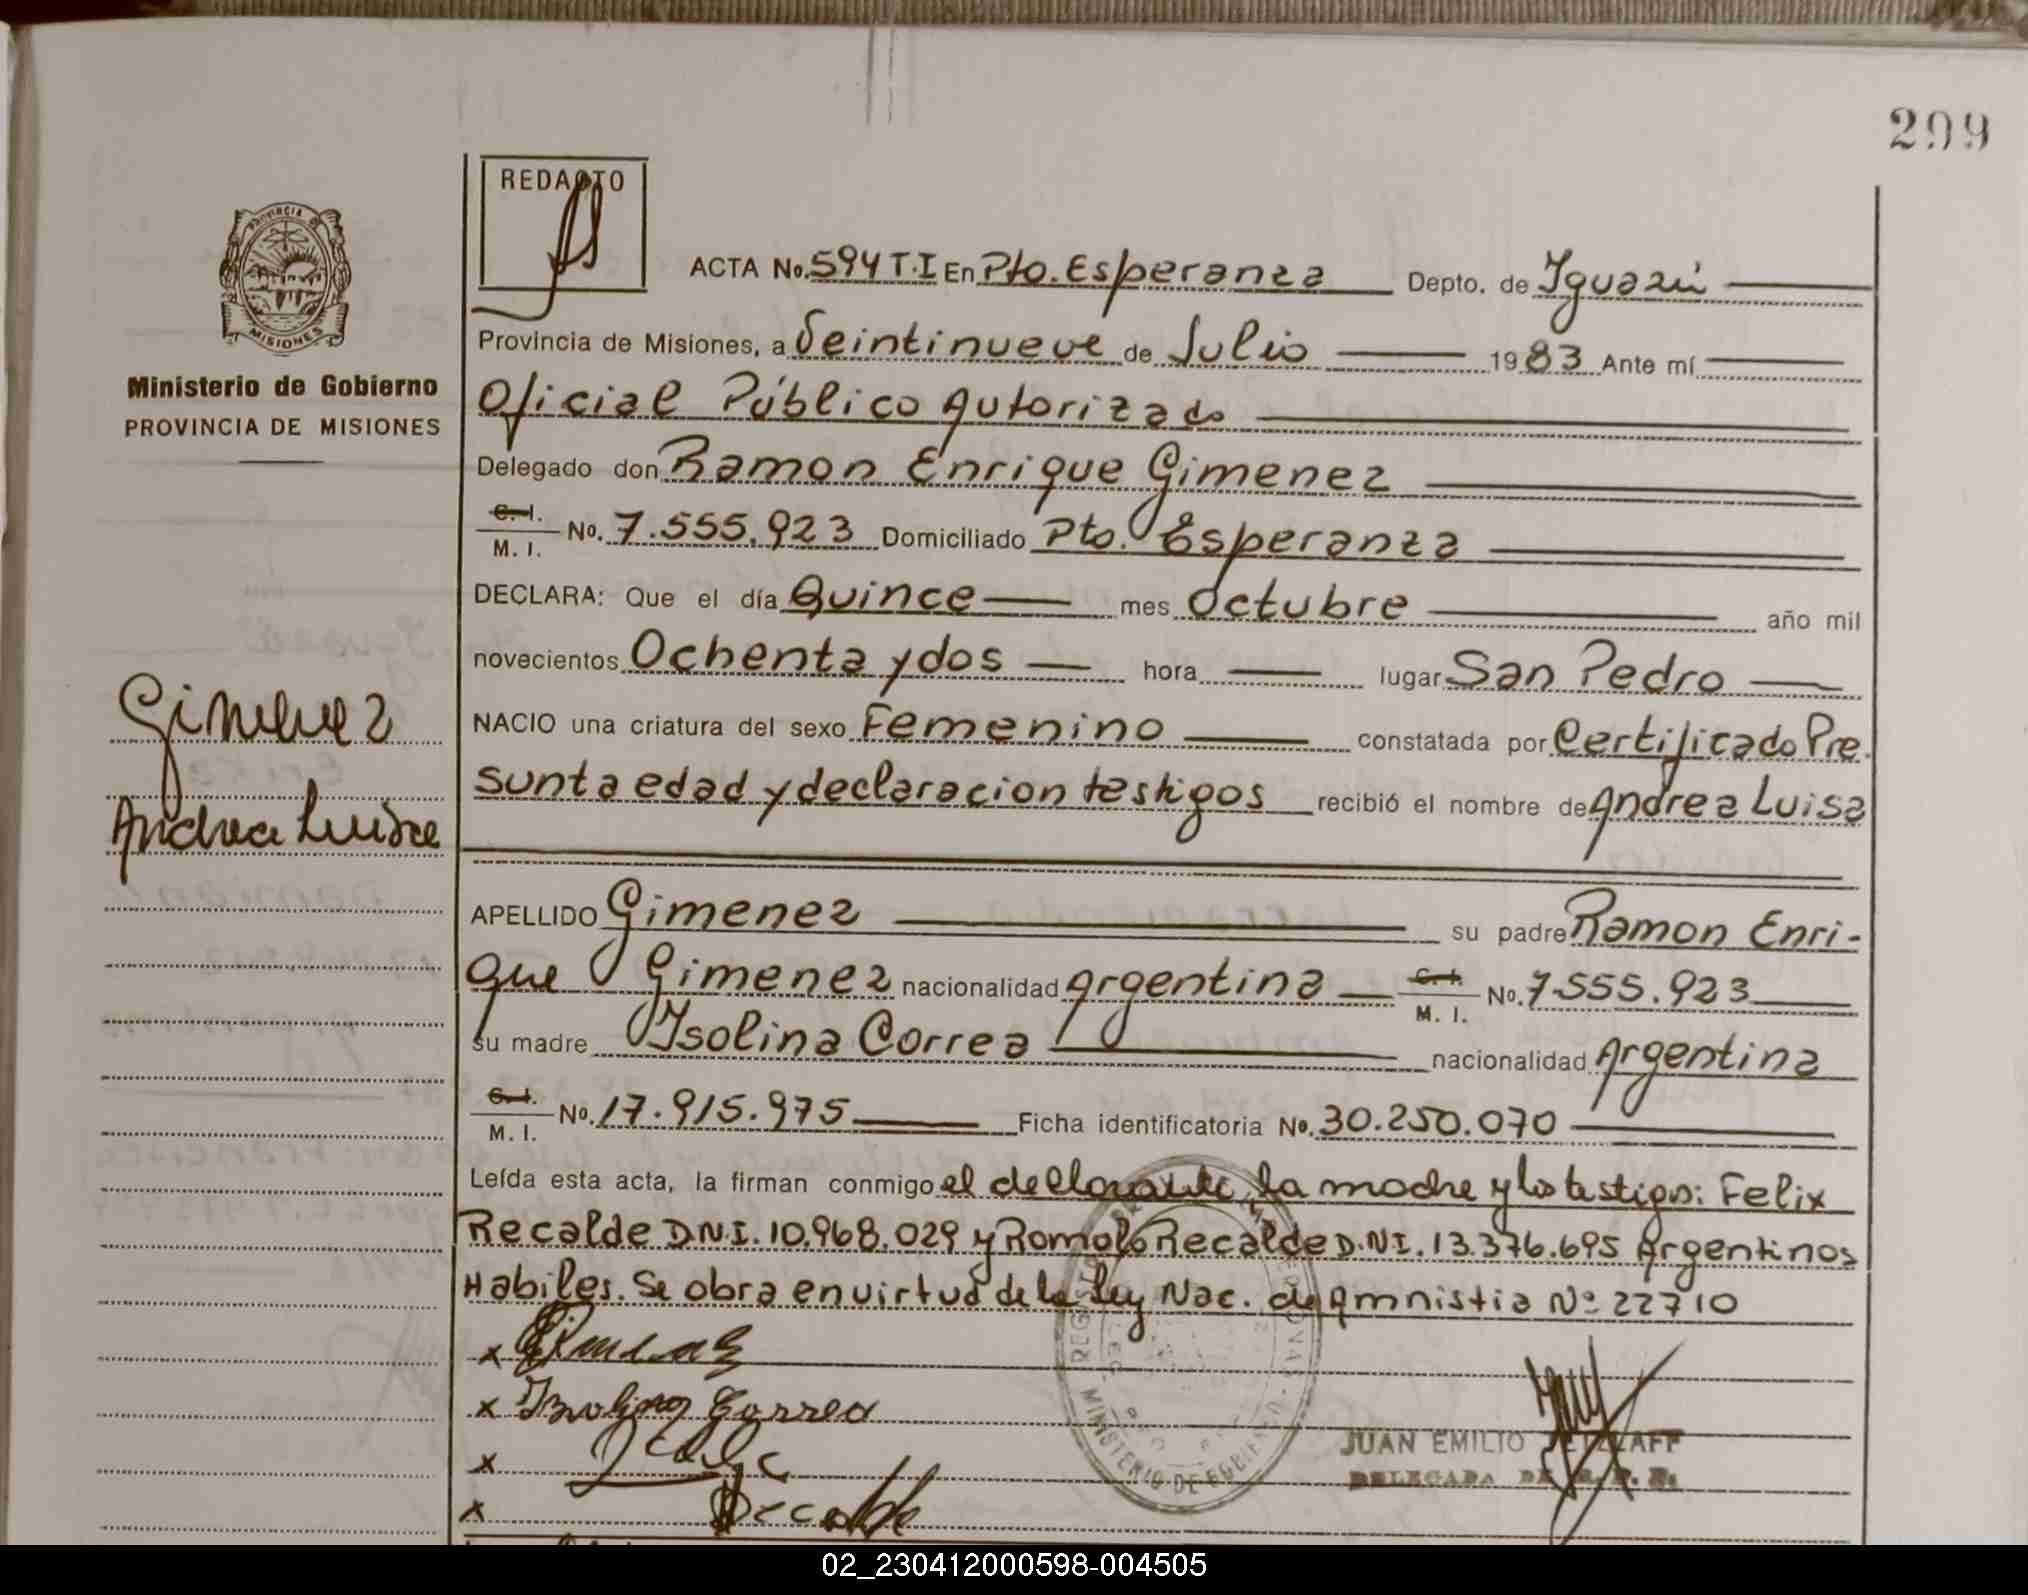 299
REDACTO
ACTA No. 594 T.I En Pto. Esperanza Depto. de Iguazú
PROVINCIA
MISIONES
Ministerio de Gobierno
PROVINCIA DE MISIONES
Provincia de Misiones, a Veintinueve de Julio 1983 Ante mí
Oficial Público Autorizado
Delegado don Ramon Enrique Gimenez
C. I. M. I. No. 7.555.923 Domiciliado Pto. Esperanza
DECLARA: Que el día Quince mes Octubre año mil
novecientos Ochenta y dos hora lugar San Pedro
Gimenez
Andrea Luisa
NACIO una criatura del sexo Femenino constatada por Certificado Pre-
sunta edad y declaracion testigos recibió el nombre de Andrea Luisa
APELLIDO Gimenez su padre Ramon Enri-
que Gimenez nacionalidad Argentina C. I. M. I. No. 7.555.923
su madre Isolina Correa nacionalidad Argentina
C. I. M. I. No. 17.915.975 Ficha identificatoria No. 30.250.070
Leída esta acta, la firman conmigo el declarante, la madre y los testigos: Felix
Recalde D.N.I. 10.968.029 y Romolo Recalde D.N.I. 13.376.695 Argentinos
Habiles. Se obra en virtud de la Ley Nac. de Amnistia Nº 22710
x Gimenez
x Isolina Correa
x
x Recalde
MINISTERIO DE GOBIERNO
JUAN EMILIO
02_230412000598-004505